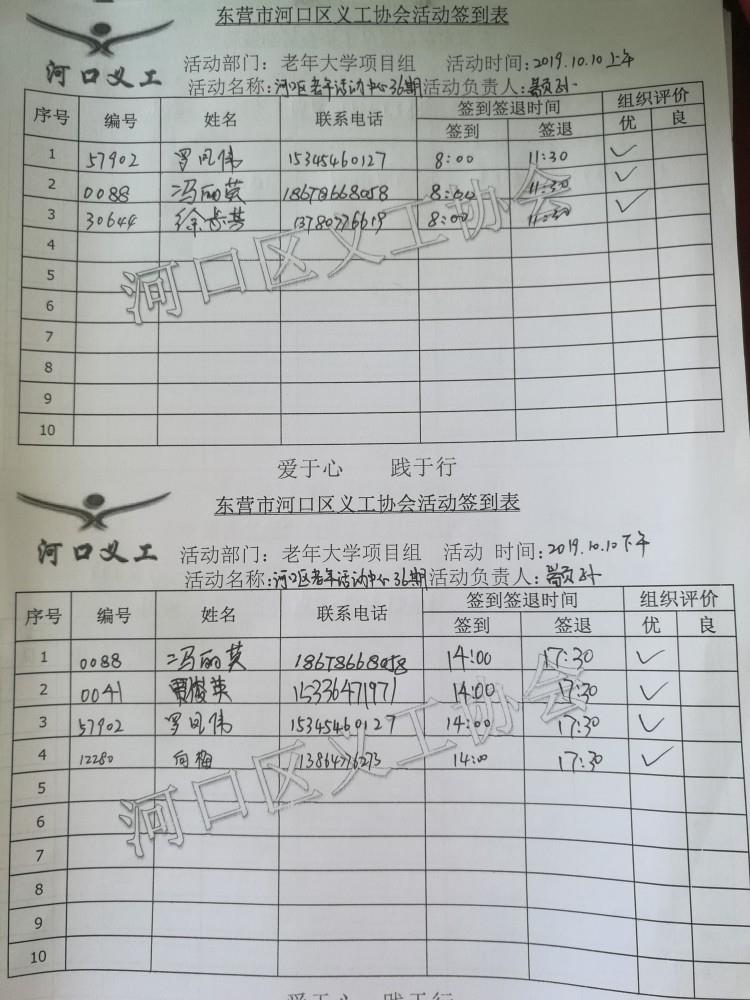 东营市河口区义工协会活动签到表
河口义工
活动部门：老年大学项目组 活动时间：2019.10.10上午
活动名称：河口区老年活动中心36期 活动负责人：
序号 编号 姓名 联系电话 签到签退时间 组织评价
签到 签退 优 良
1 57902 罗凤伟 15345460127 8:00 11:30 ✓
2 0088 冯丽英 18678668058 8:00 11:30 ✓
3 30644 徐 其 13780776619 8:00 11:30 ✓
4
5
6
7
8
9
10
河口区义工协会
爱于心 践于行
东营市河口区义工协会活动签到表
河口义工
活动部门：老年大学项目组 活动 时间：2019.10.10下午
活动名称：河口区老年活动中心36期 活动负责人：
序号 编号 姓名 联系电话 签到签退时间 组织评价
签到 签退 优 良
1 0088 冯丽英 18678668058 14:00 17:30 ✓
2 0041 英 15336471971 14:00 17:30 ✓
3 57902 罗凤伟 15345460127 14:00 17:30 ✓
4 12280 向梅 13864776273 14:00 17:30 ✓
5
6
7
8
9
10
河口区义工协会
爱于心 践于行